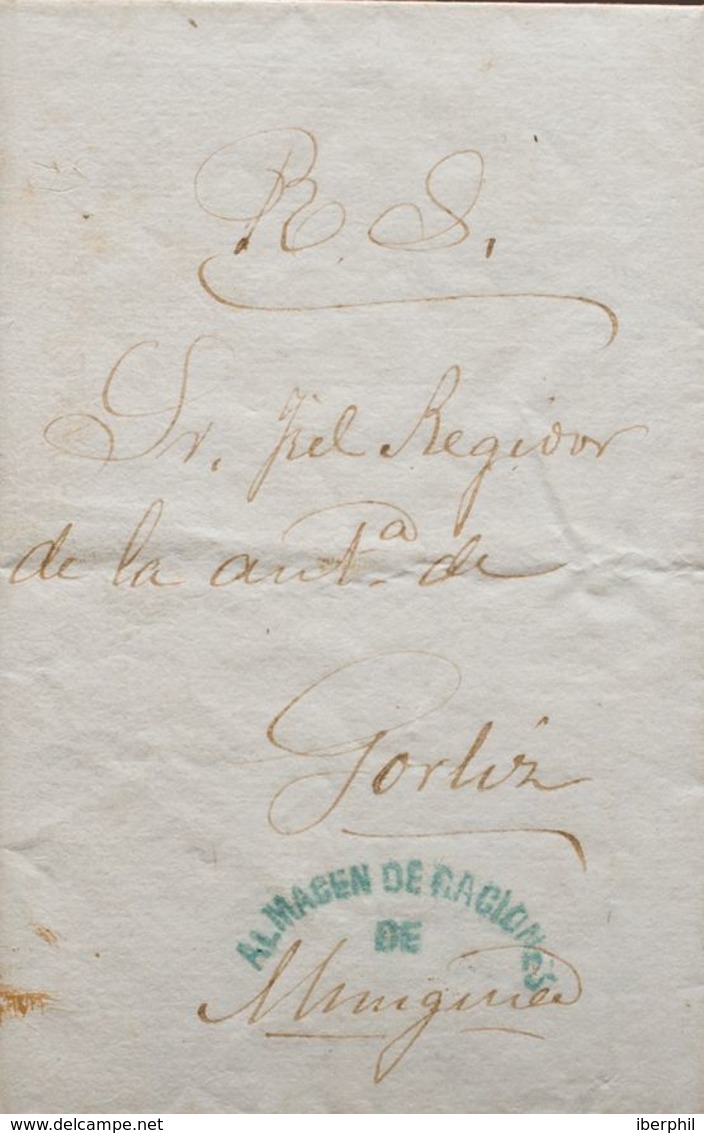 R. S.
Sr. Fiel Regidor
de la antª. de
Gorliz
ALMACEN DE RACIONES
DE
Munguia
delcampe.net
iberphil